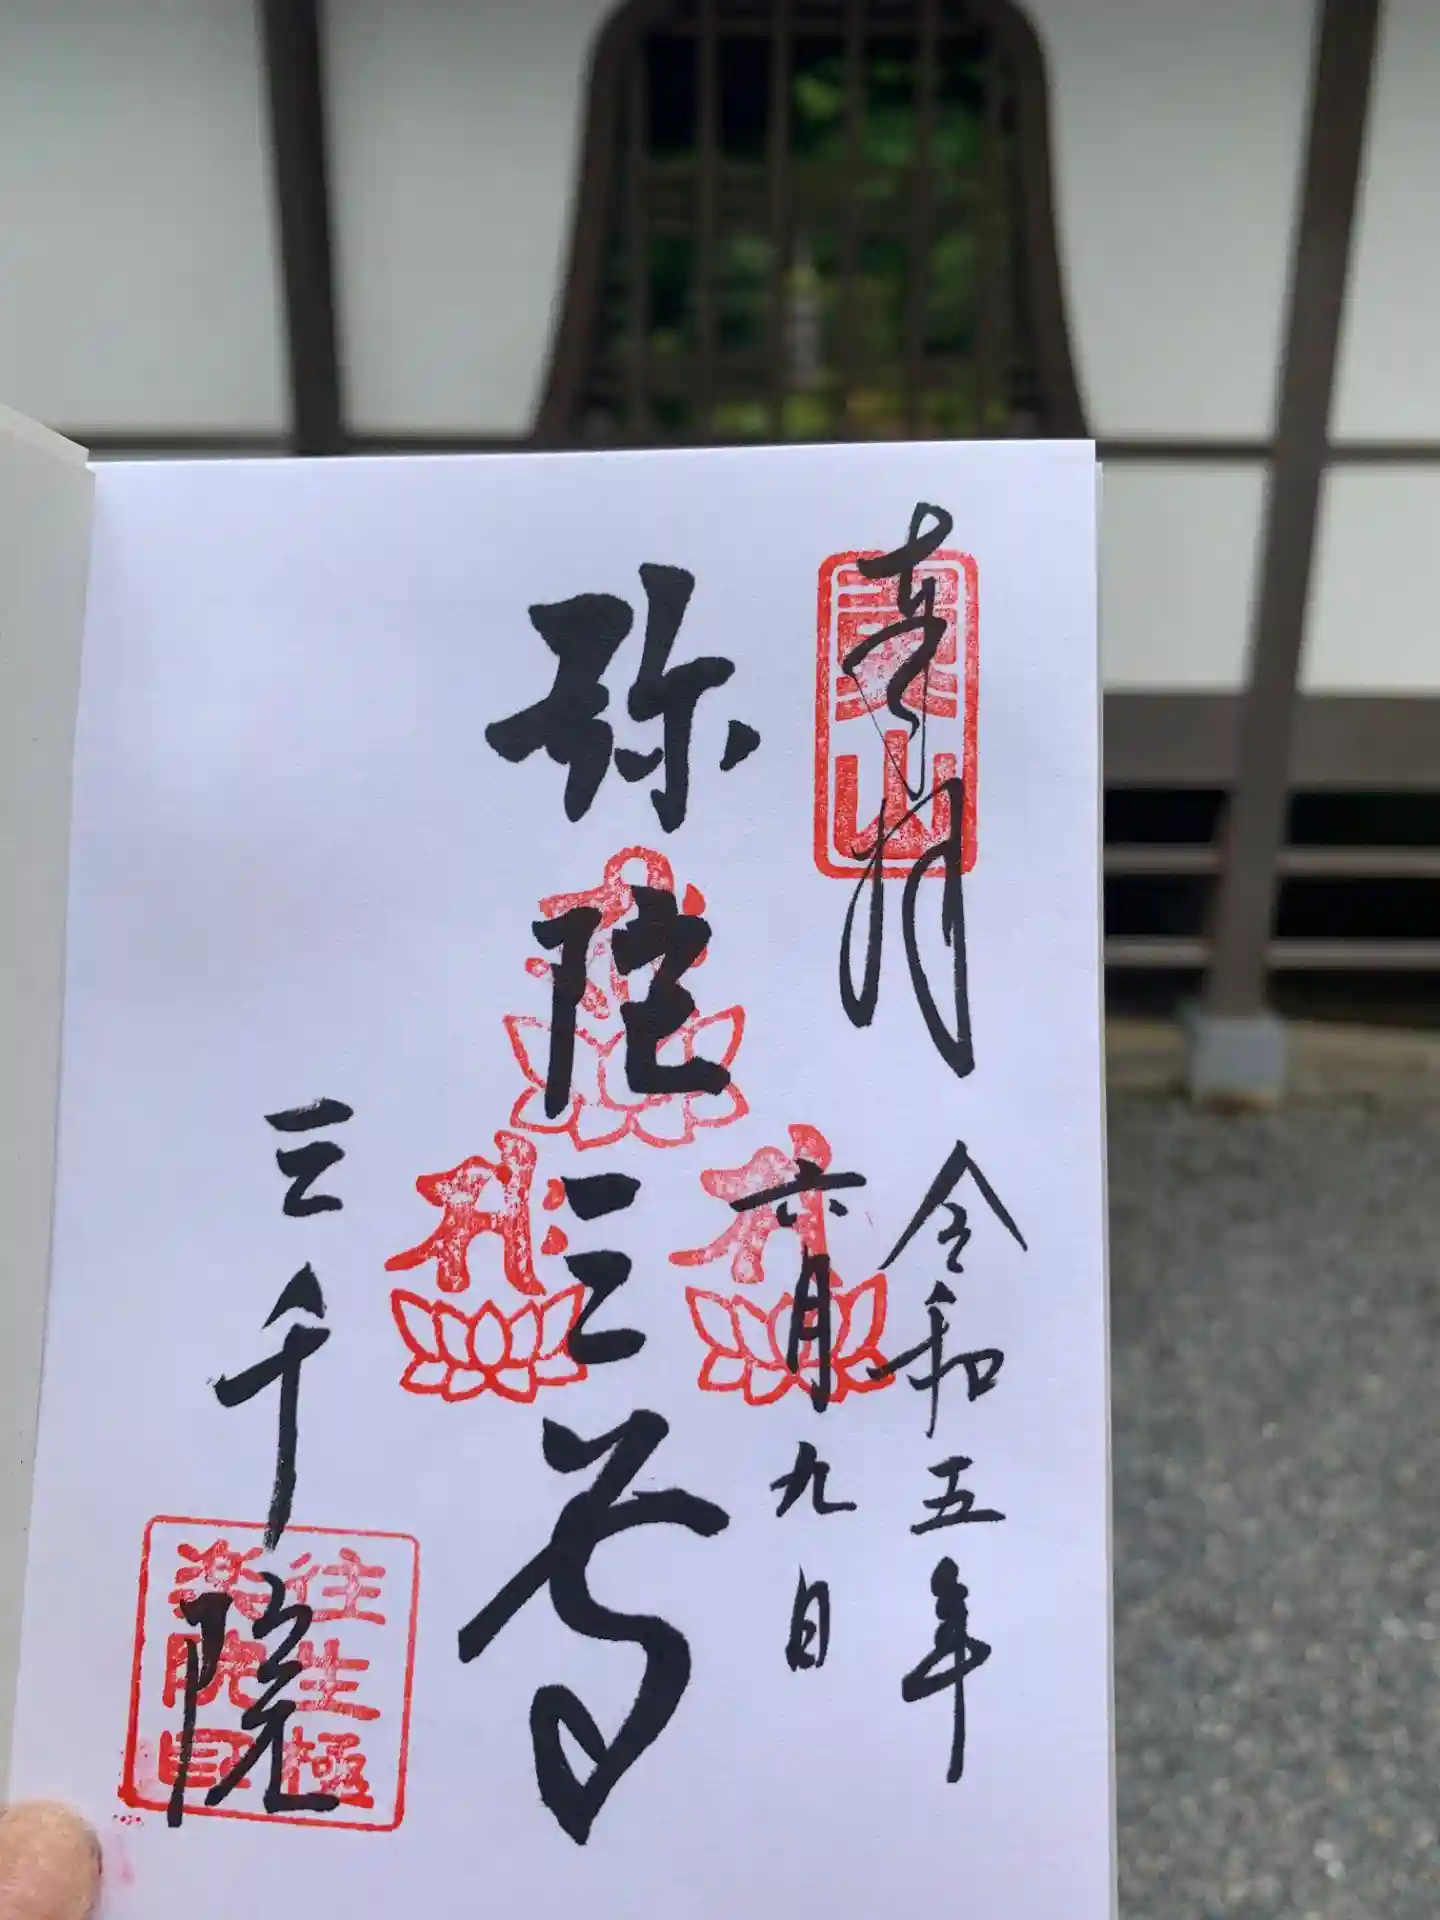 奉拝
梨山
令和五年
六月九日
弥陀三尊
三千院
往生極
楽院印